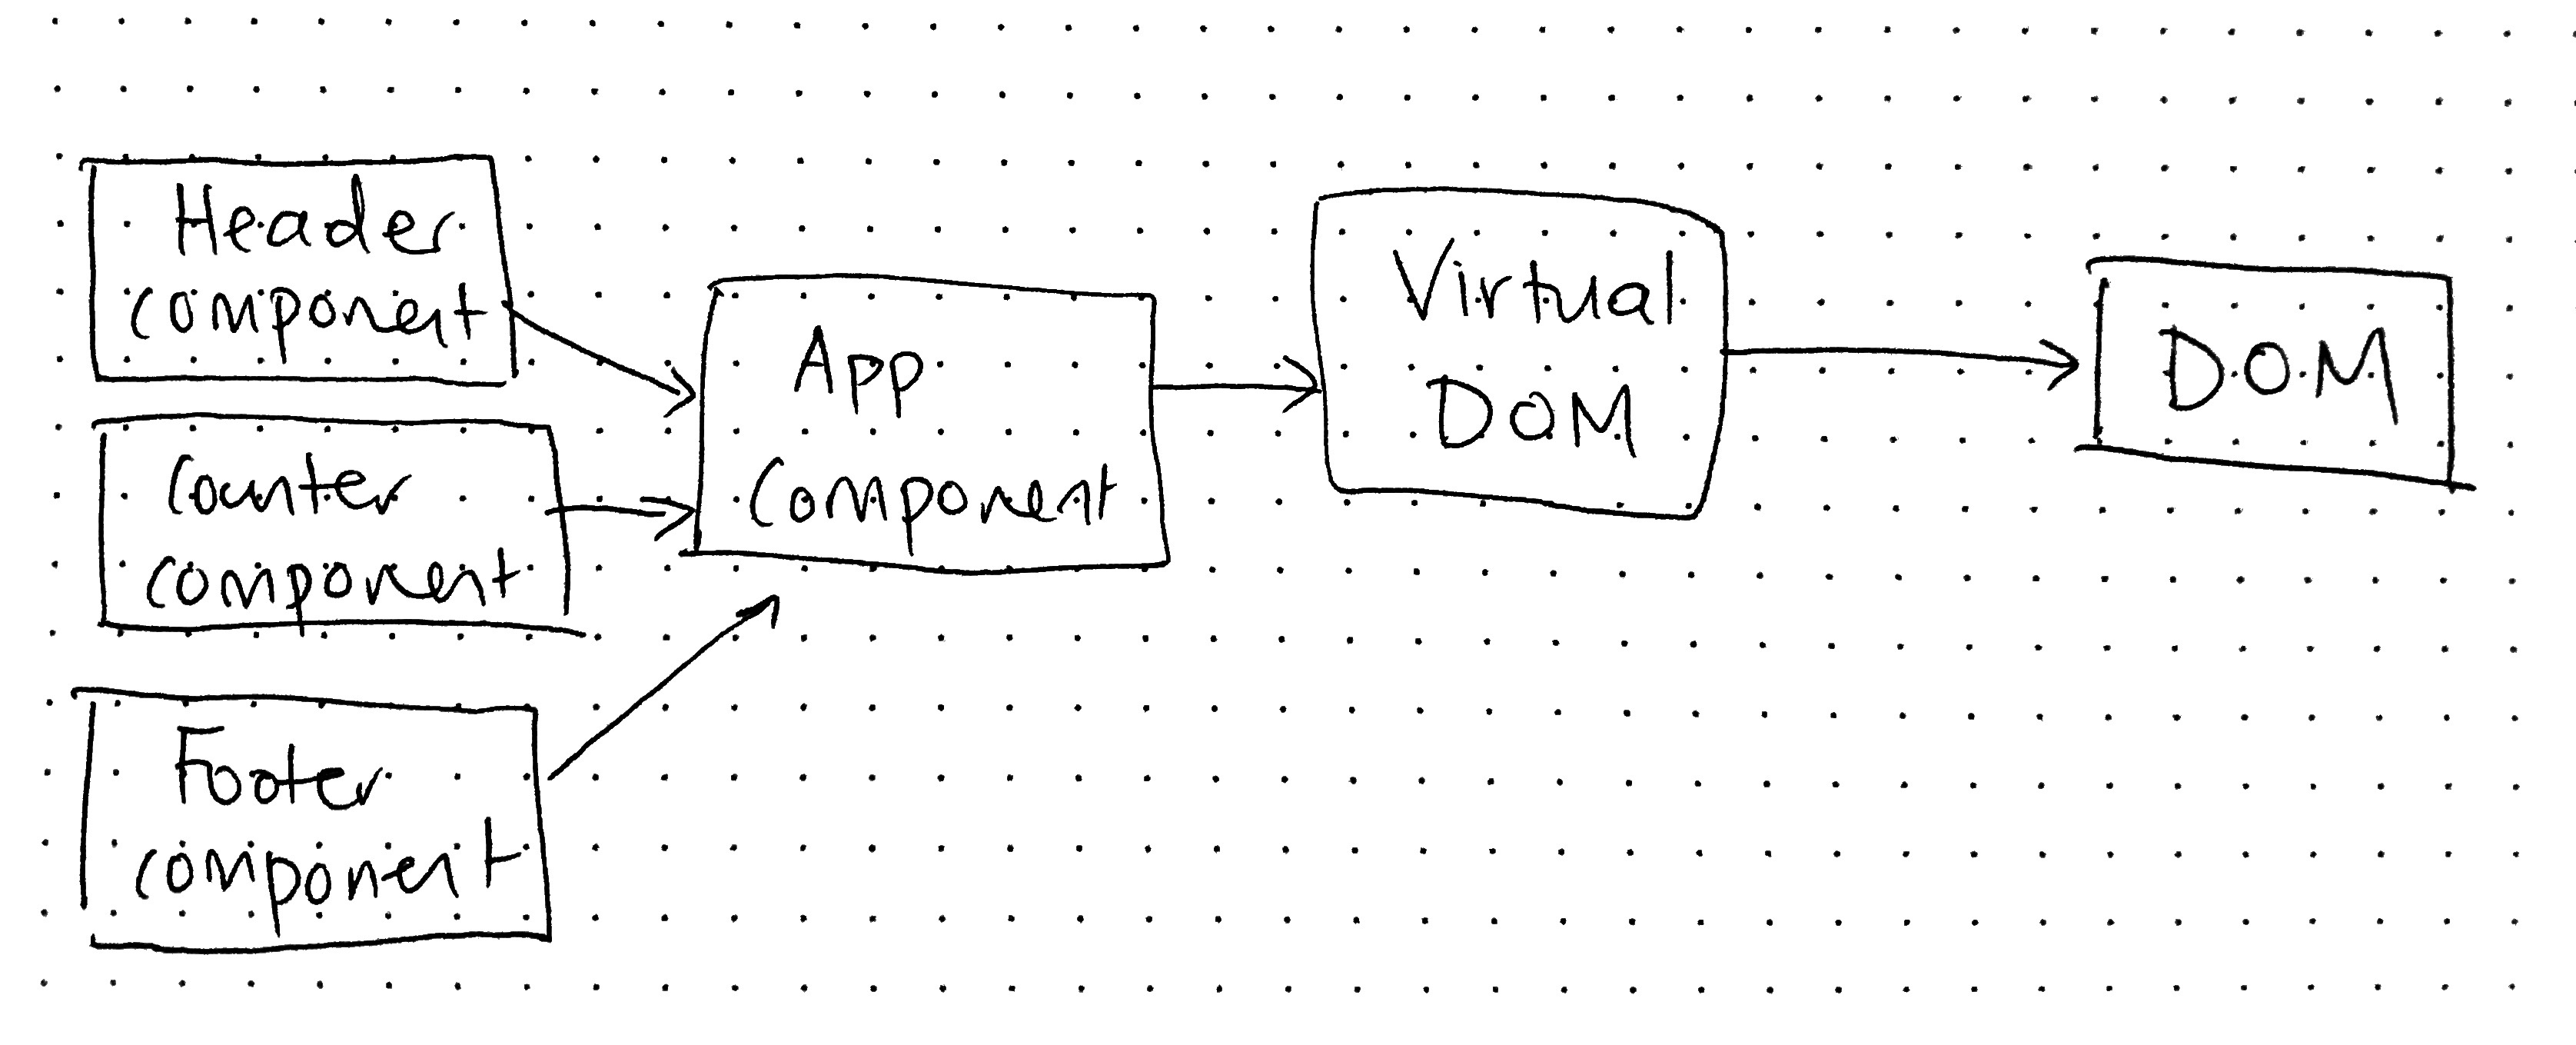 Header
component
Counter
component
Footer
component
App
Component
Virtual
DOM
DOM